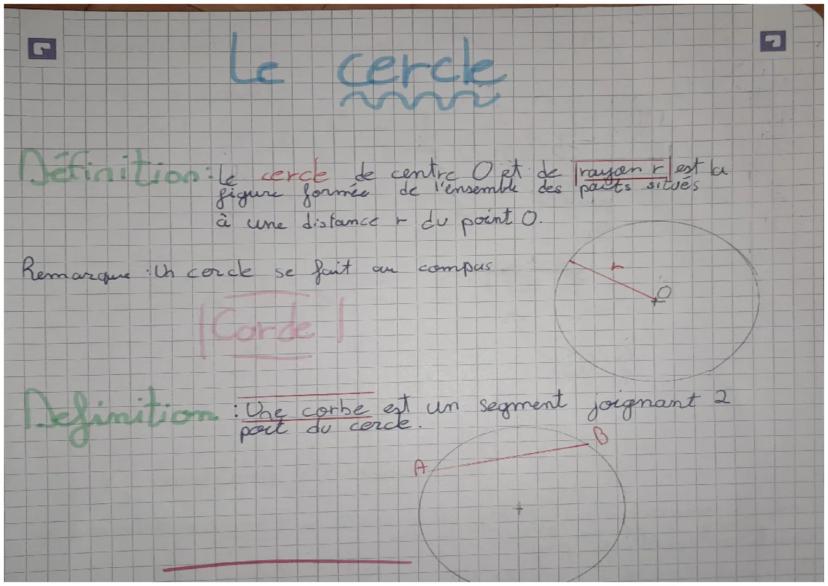 Le cercle
Définition : le cercle de centre O et de rayon r est la
figure formée de l'ensemble des points situés
à une distance r du point O.
Remarque : Un cercle se fait au compas
r
O
Corde
Definition : Une corbe est un segment joignant 2
poit du cercle.
A
B